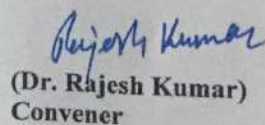 Rajesh Kumar
(Dr. Rajesh Kumar)
Convener